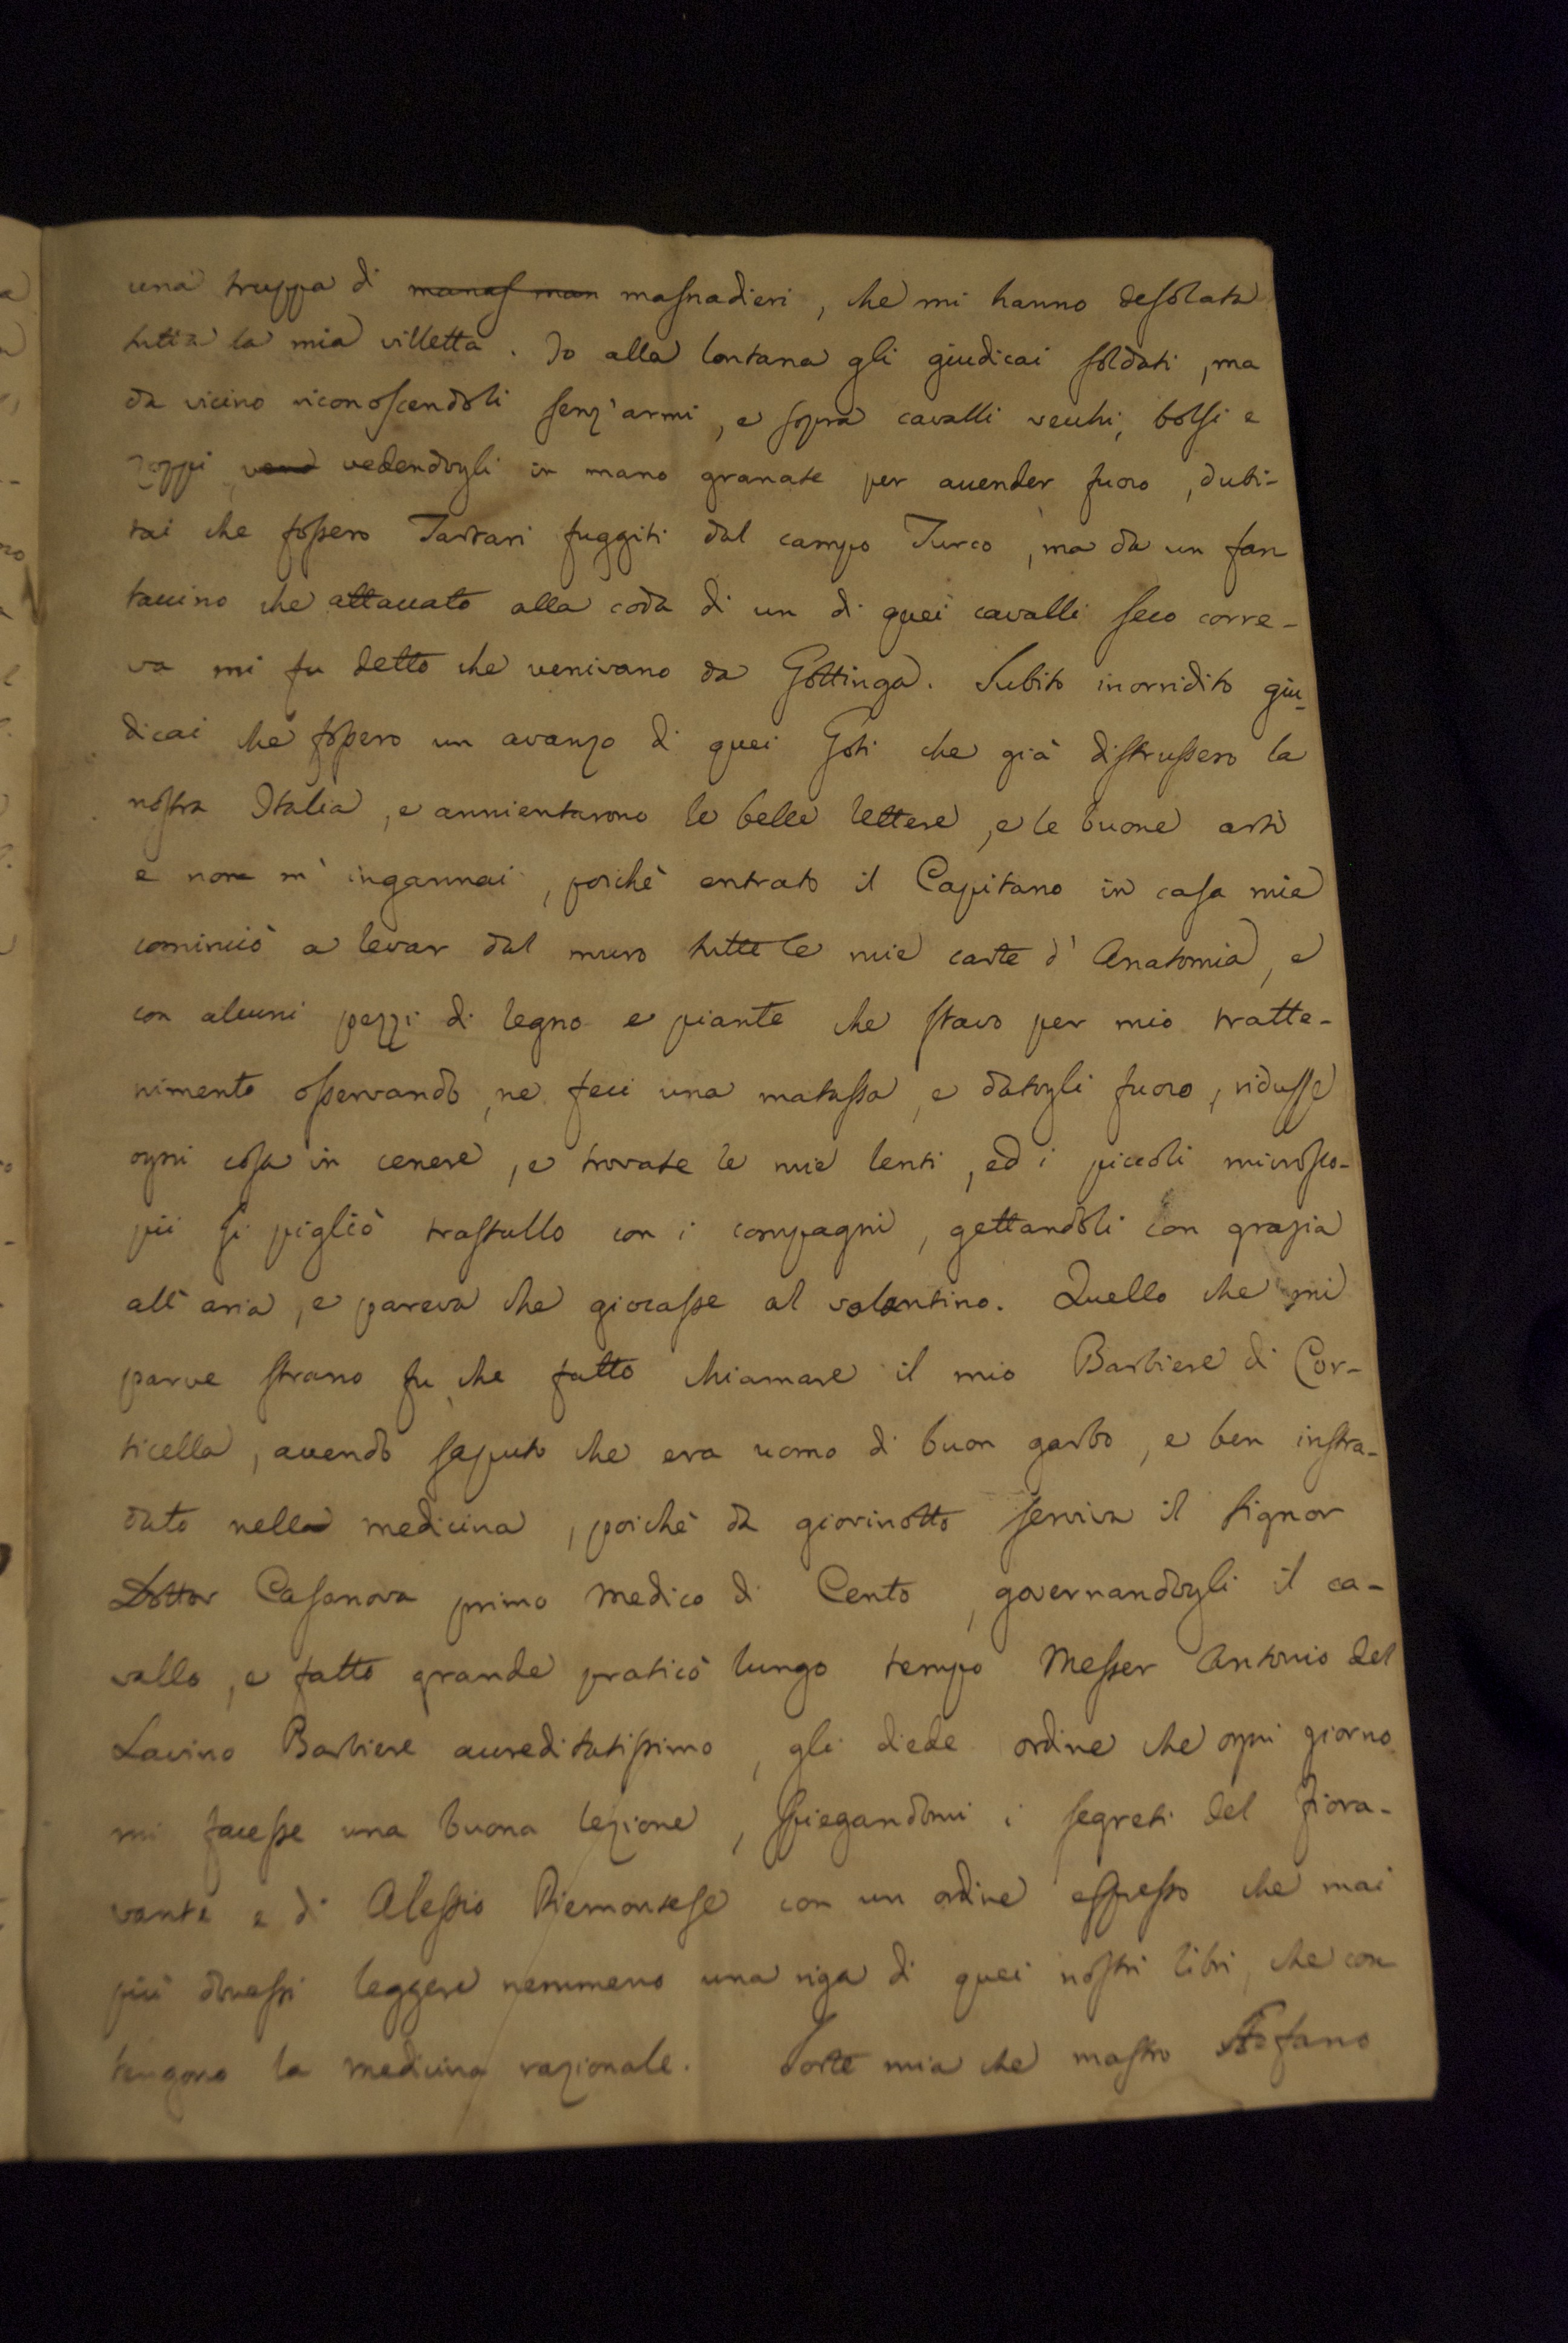 una truppa di manas man masnadieri, che mi hanno desolata
tutta la mia villetta. Io alla lontana gli giudicai soldati, ma
da vicino riconoscendoli senz'armi, e sopra cavalli vecchi, bolsi e
zoppi, vend vedendogli in mano granate per accender fuoco, dubi-
tai che fossero Tartari fuggiti dal campo Turco, ma da un fan
taccino che attaccato alla coda di un di quei cavalli seco corre-
va mi fu detto che venivano da Gottinga. Subito inorridito giu-
dicai che fossero un avanzo di quei Goti che già distrussero la
nostra Italia, e annientarono le belle lettere, e le buone arti
e non m'ingannai, poichè entrato il Capitano in casa mia
cominciò a levar dal muro tutte le mie carte d'Anatomia, e
con alcuni pezzi di legno e piante che stavo per mio tratte-
nimento osservando, ne feci una matassa, e datogli fuoco, ridusse
ogni cosa in cenere, e trovate le mie lenti, ed i piccoli microsco-
pii si pigliò trastullo con i compagni, gettandoli con grazia
all'aria, e pareva che giocasse al volantino. Quello che mi
parve strano fu che fatto chiamare il mio Barbiere di Cor-
ticella, avendo saputo che era uomo di buon garbo, e ben instra-
dato nella medicina, poichè da giovinotto serviva il Signor
Dottor Casanova primo Medico di Cento, governandogli il ca-
vallo, e fatto grande praticò lungo tempo Messer Antonio del
Lavino Barbiere accreditatissimo, gli diede ordine che ogni giorno
mi facesse una buona lezione, spiegandomi i segreti del Fiora-
vanti e di Alessio Piemontese con un ordine espresso che mai
più dovessi leggere nemmeno una riga di quei nostri libri, che con
tengono la medicina razionale. Sorte mia che mastro Stefano